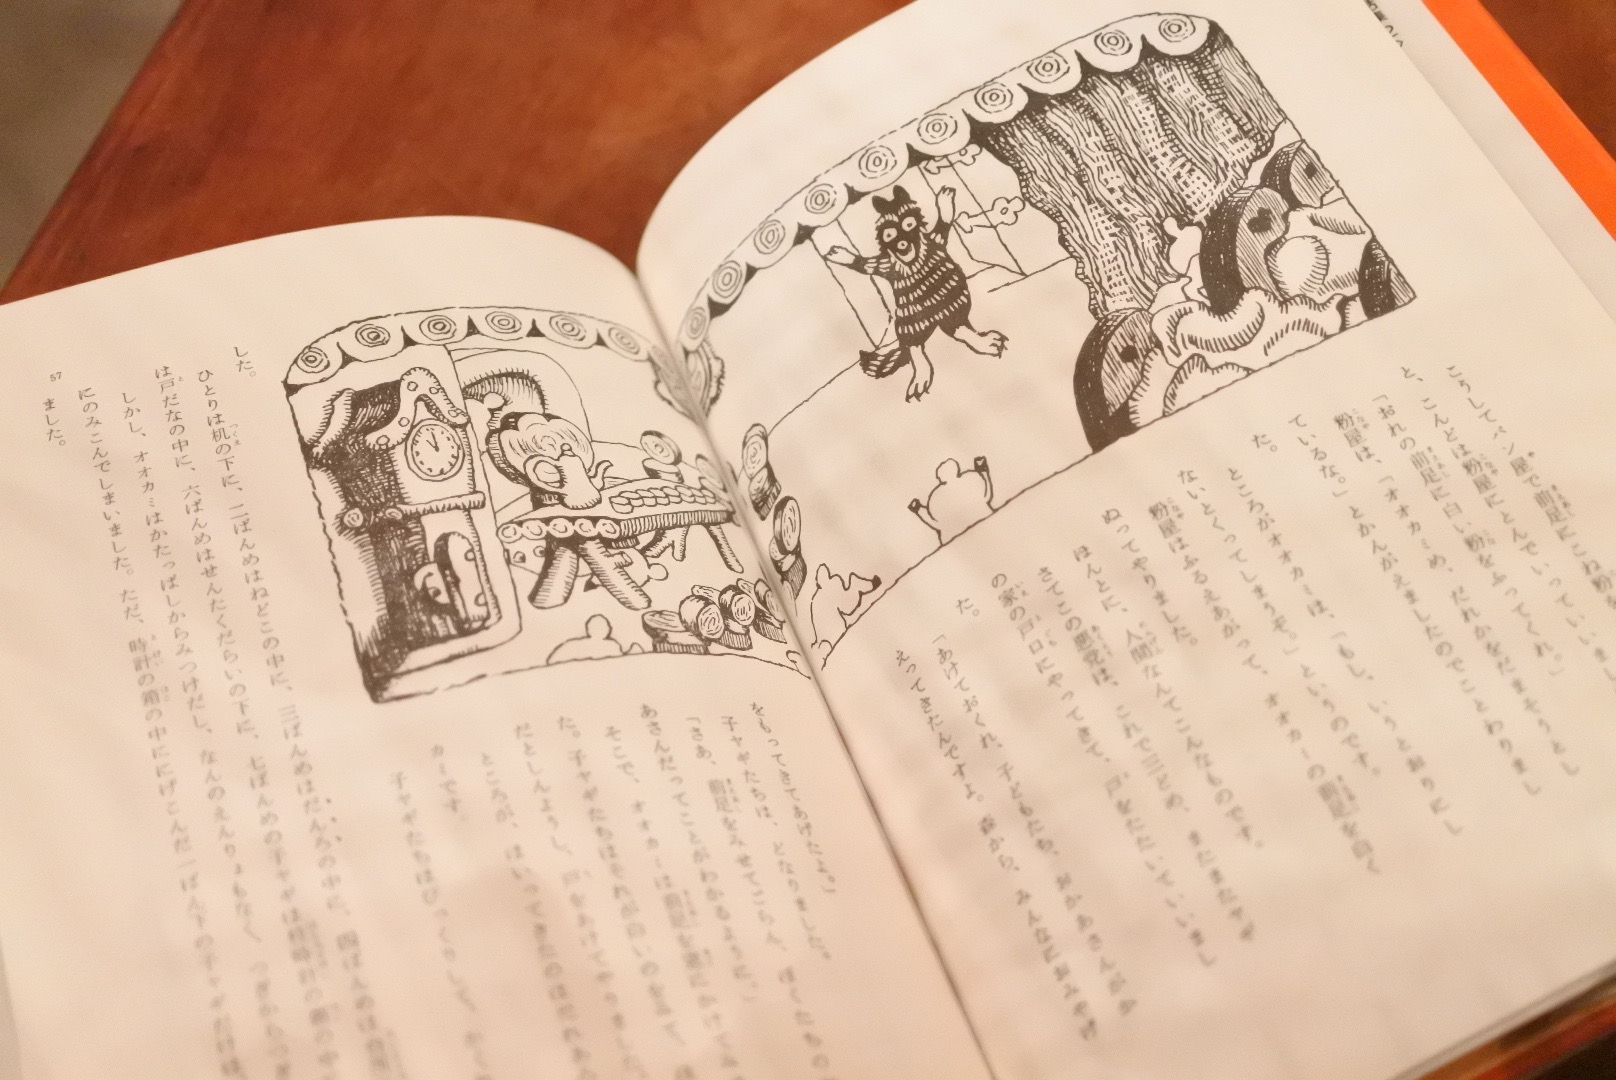 こうしてパン屋で前足にこね粉を
と、こんどは粉屋にとんでいっていいまし
「おれの前足に白い粉をふってくれ。」
粉屋は、「オオカミめ、だれかをだまそうとし
ているな。」とかんがえましたのでことわりまし
た。
ところがオオカミは、「もし、いうとおりにし
ないとくってしまうぞ。」というのです。
粉屋はふるえあがって、オオカミの前足を白く
ぬってやりました。
ほんとに、人間なんてこんなものです。
さてこの悪党は、これで三どめ、またまたヤギ
の家の戸口にやってきて、戸をたたいていいまし
た。
「あけておくれ、子どもたち、おかあさんがか
えってきたんですよ。森から、みんなにおみやげ
をもってきてあげたよ。」
子ヤギたちは、どなりました。
「さあ、前足をみせてごらん、ぼくたちの
あさんだってことがわかるように。」
そこで、オオカミは前足を窓にかけてみ
た。子ヤギたちはそれが白いのをみて、
だとしんようし、戸をあけてやりました。
ところが、はいってきたのはだれあ
カミです。
子ヤギたちはびっくりして、かくれ
した。
ひとりは机の下に、二ばんめはねどこの中に、三ばんめはだんろの中に、四ばんめは台所
は戸だなの中に、六ばんめはせんたくだらいの下に、七ばんめの子ヤギは柱時計の箱の中
しかし、オオカミはかたっぱしからみつけだし、なんのえんりょもなく、つぎからつぎ
にのみこんでしまいました。ただ、時計の箱の中ににげこんだ一ばん下の子ヤギだけは、
ました。
57